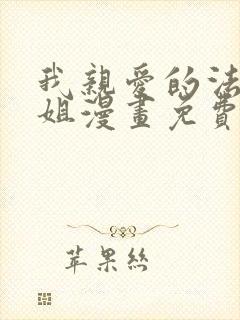 我親愛的法
姐漫畫免費
苹果絲